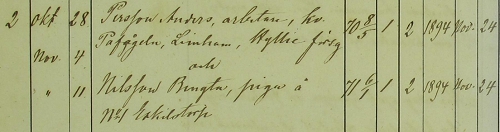 2 Okt 28 Persson Anders, arbetare, kv. 70 8/5 1 2 1894 Nov. 24
Nov. 4 Påfågeln, Limhamn, Hyllie förs.
och
" 11 Nilsson Bengta, piga å 71 6/1 1 2 1894 Nov. 24
No 1 Eskilstorp